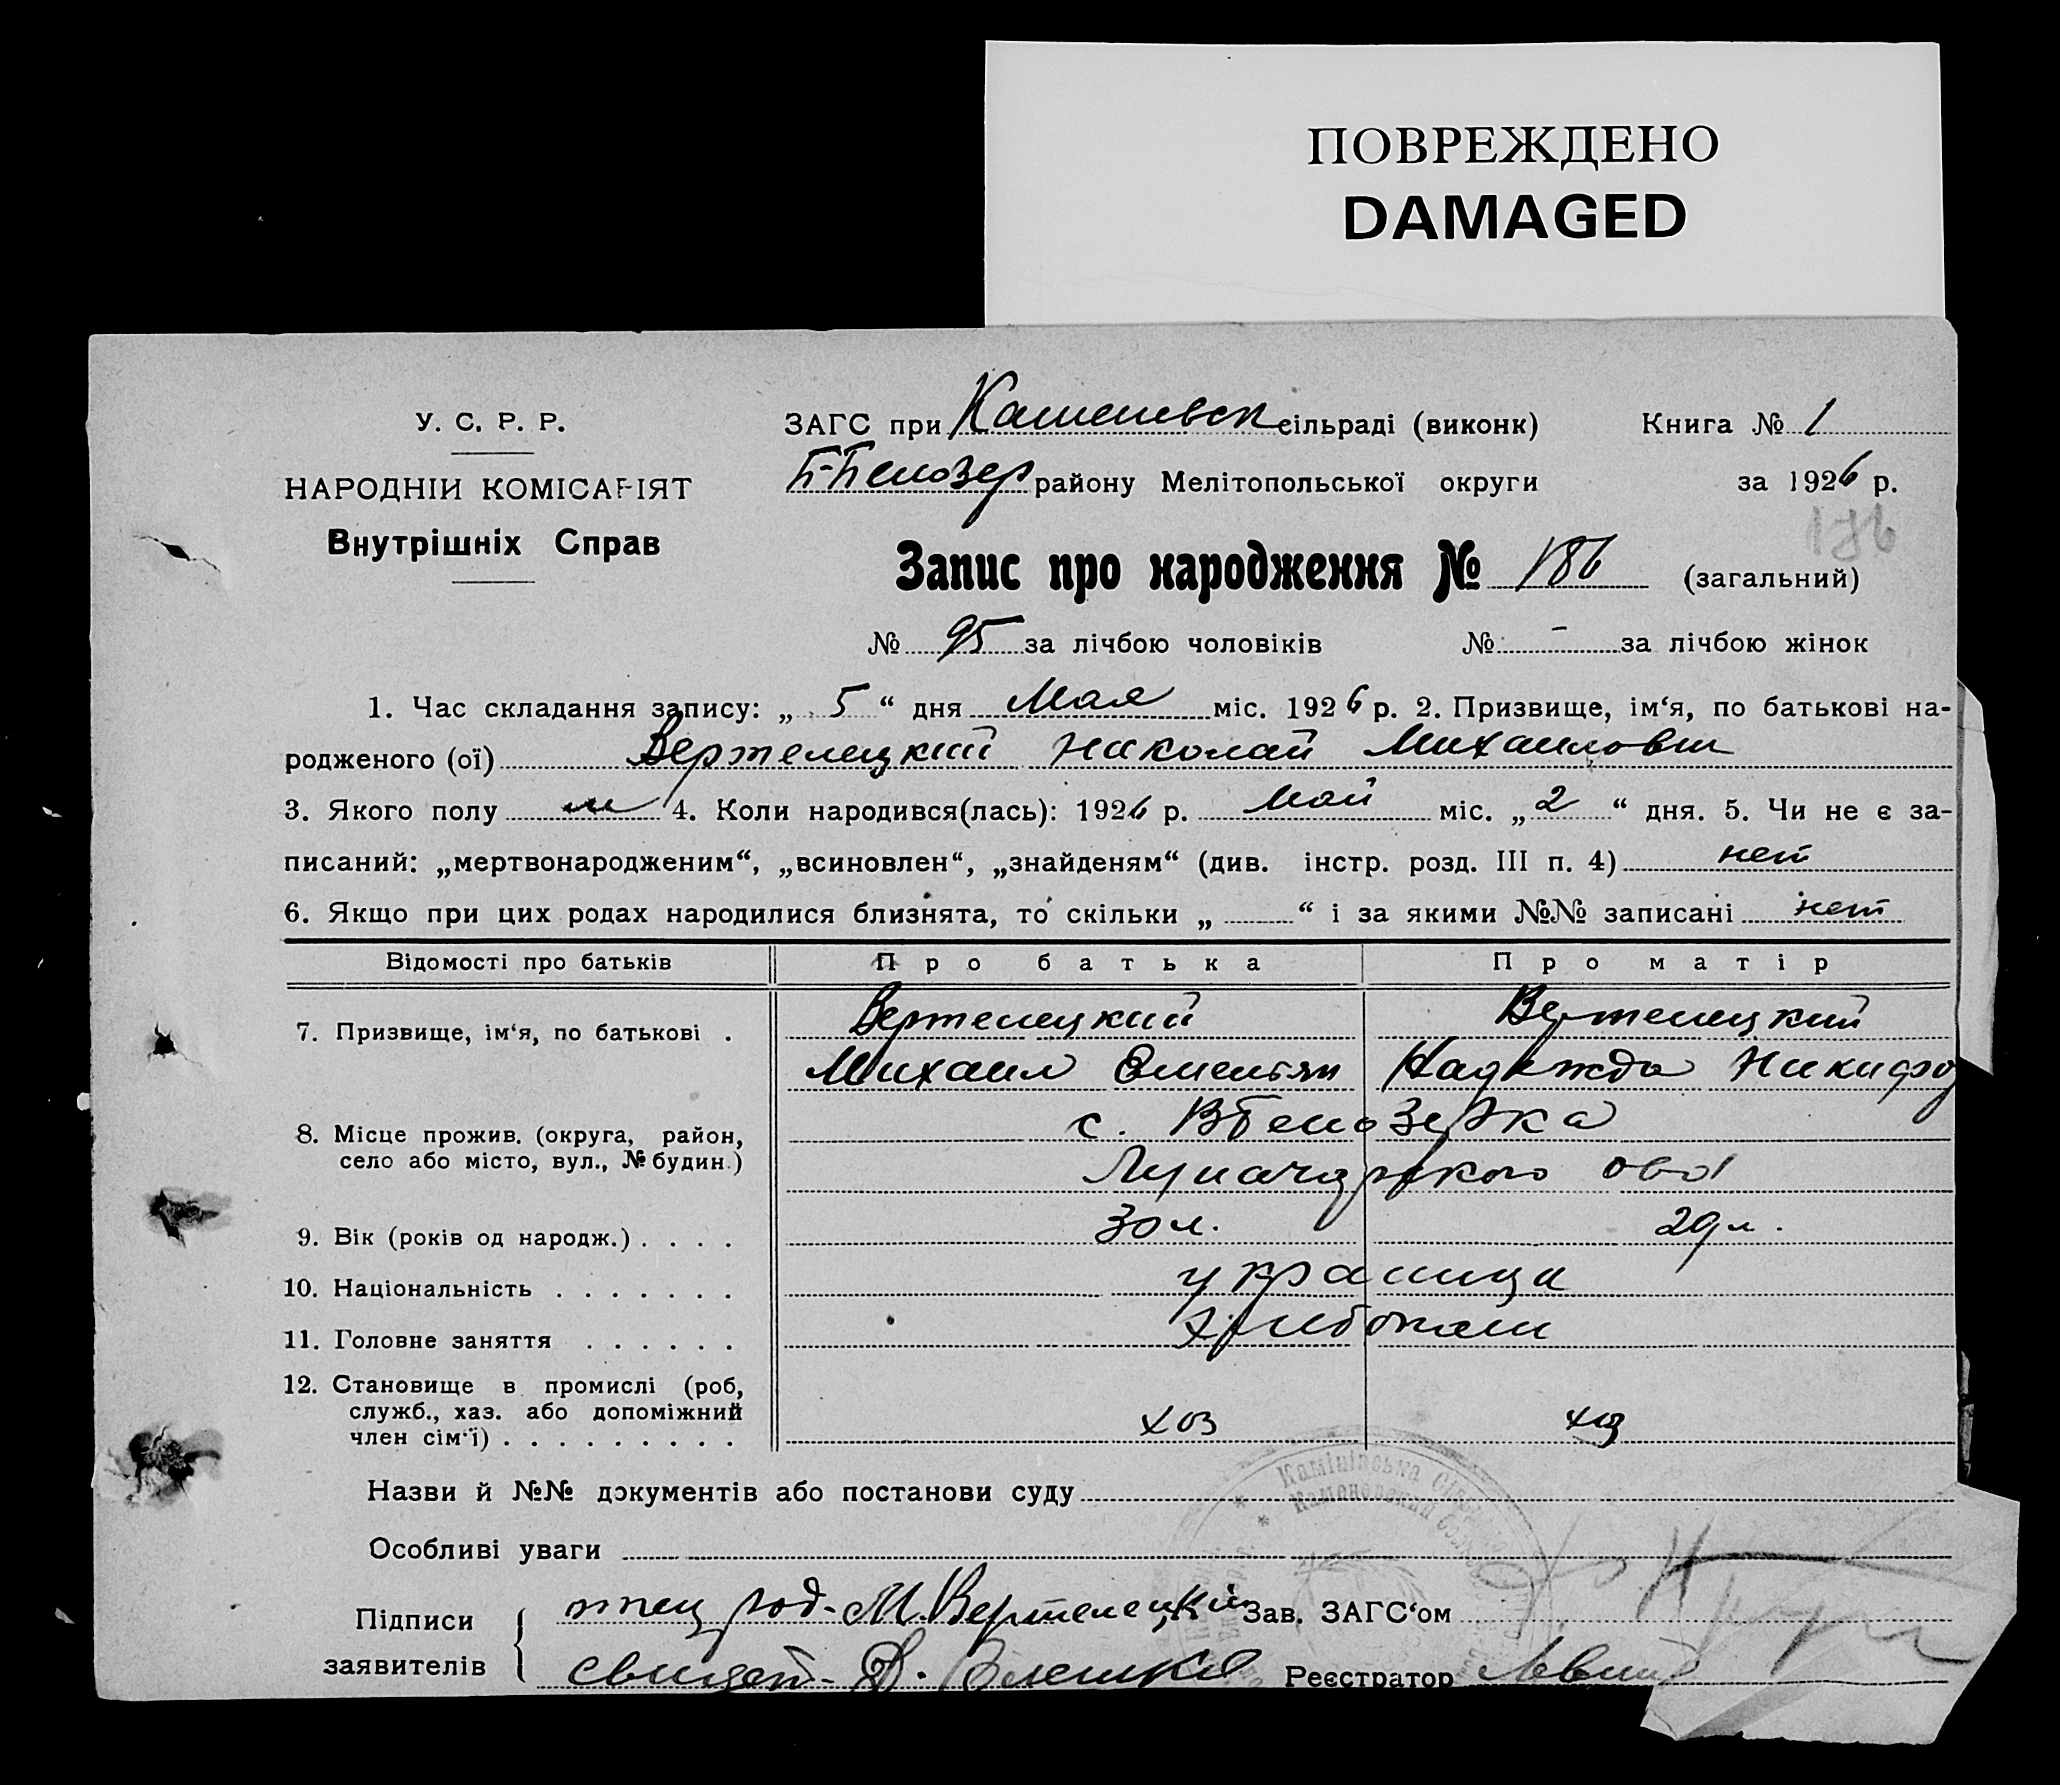 ПОВРЕЖДЕНО
DAMAGED
У. С. Р. Р.
НАРОДНІЙ КОМІСАРІЯТ
Внутрішніх Справ
ЗАГС при Каменевск сільраді (виконк) Книга № 1
Б-Белозер району Мелітопольської округи за 1926 р.
186
Запис про народження № 186 (загальний)
№ 95 за лічбою чоловіків № - за лічбою жінок
1. Час складання запису: „ 5 “ дня Мая міс. 1926 р. 2. Призвище, ім‘я, по батькові на-
родженого (ої) Вертелецкий Николай Михаилович
3. Якого полу м 4. Коли народився(лась): 1926 р. Май міс. „ 2 “ дня. 5. Чи не є за-
писаний: „мертвонародженим“, „всиновлен“, „знайденям“ (див. інстр. розд. III п. 4) нет
6. Якщо при цих родах народилися близнята, то скільки „ “ і за якими №№ записані нет
Відомості про батьків Про батька Про матір
7. Призвище, ім‘я, по батькові . Вертелецкий Вертелецкий
Михаил Емельян Надежда Никифо
8. Місце прожив. (округа, район, с. ВБелозерка
село або місто, вул., № будин.) Луначарского
9. Вік (років од народж.) . . . . 30 л. 29 л.
10. Національність . . . . . . . украинци
11. Головне заняття . . . . . . хлебопаш
12. Становище в промислі (роб,
служб., хаз. або допоміжний
член сім‘ї) . . . . . . . . . хоз хоз
Назви й №№ документів або постанови суду
Особливі уваги
Підписи отец род. М. Вертелецкий Зав. ЗАГС‘ом
заявителів свидет- Д. Реєстратор